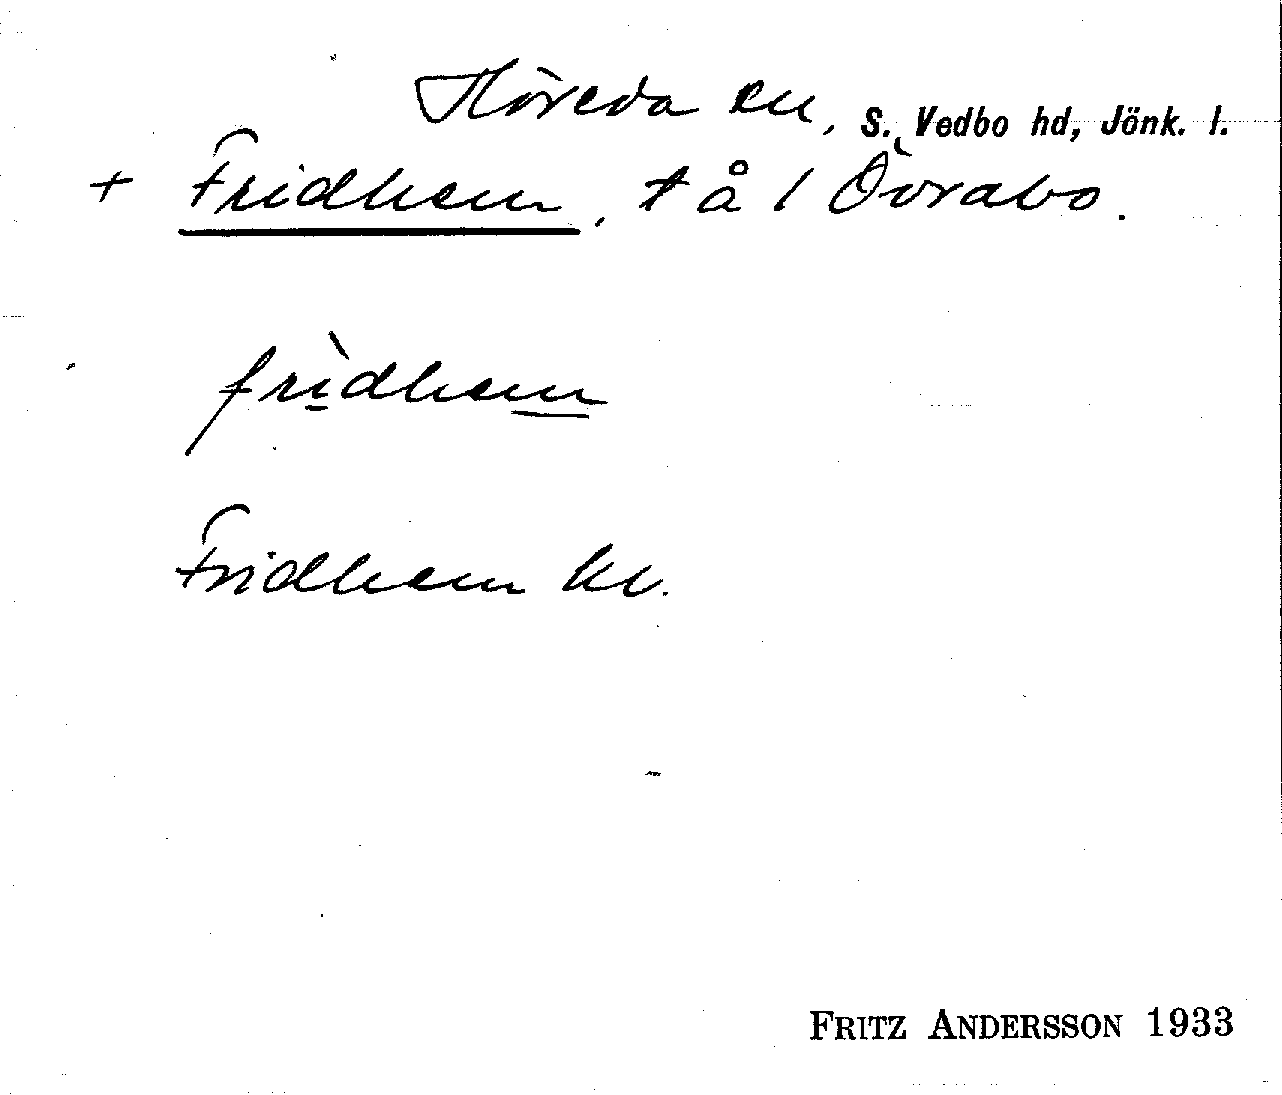 Höreda sn, S. Vedbo hd, Jönk. l.
+ Fridhem, t å / Övrabo.
frìdhem
Fridhem kv.
FRITZ ANDERSSON 1933